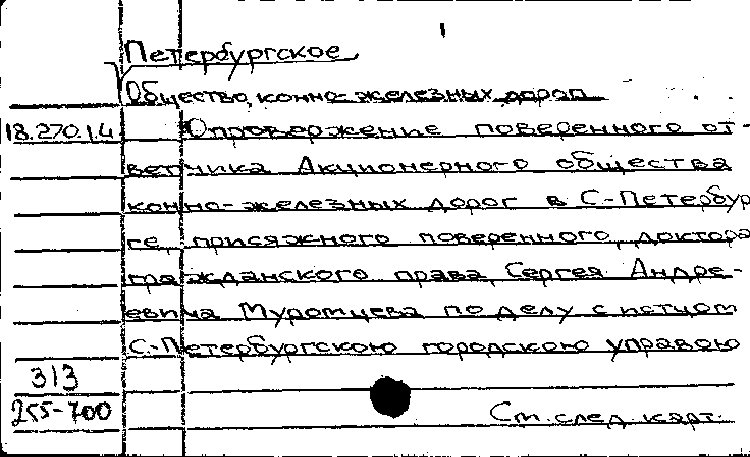 1
Петербургское
Общество конно-железных дорог
18.270.1.4
Опровержение поверенного от-
ветчика Акционерного общества
конно-железных дорог в С-Петербур
ге, присяжного поверенного, доктора
гражданского права, Сергея Андре-
евича Муромцева по делу с истцом
С.-Петербургскою городскою управою
313
255-700
См. след. карт.